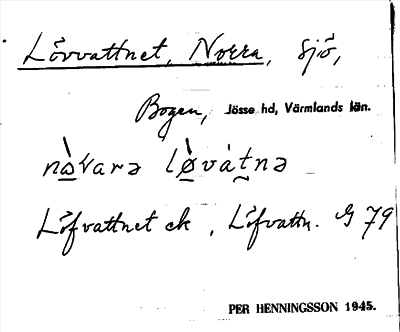 Lövvattnet, Norra, sjö,
Bogen, Jösse hd, Värmlands län.
nò̲varə lø̲̀vát̰nə
Löfvattnet ek, Löfvattn. G 79
PER HENNINGSSON 1945.